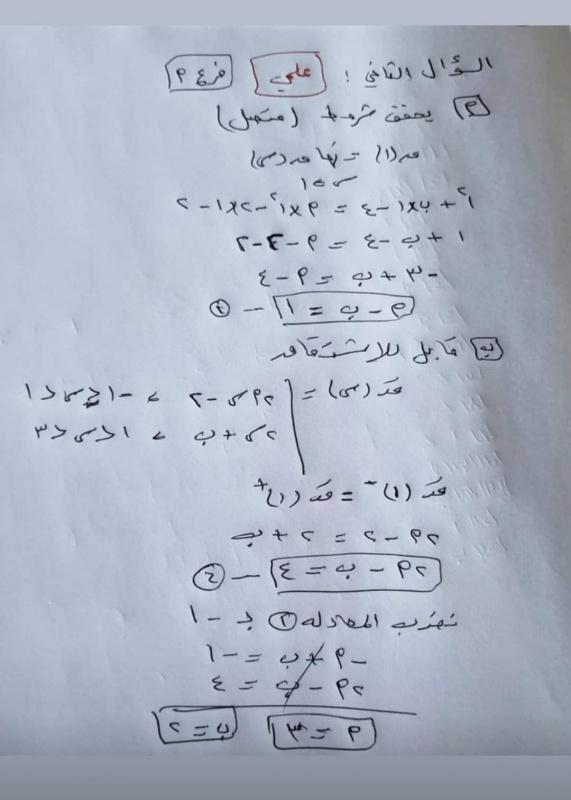 السؤال الثاني : علمي فرع م
م يحقق شروط (متصل)
مه(١) = نها مه(س)
س→١
١² + ب×١ - ٤ = م×١² - ٢×١ - ٢
١ + ب - ٤ = م - ٢ - ٢
-٣ + ب = م - ٤
م - ب = ١ — ②
ب قابل للاشتقاق
مَه(س) = ٢م س - ٢ ، -١<س<١
٢س + ب ، ١<س<٣
مَه(١)⁻ = مَه(١)⁺
٢م - ٢ = ٢ + ب
٢م - ب = ٤ — ②
نضرب المعادلة ② بـ -١
-م + ب = -١
٢م - ب = ٤
م = ٣ ب = ٢